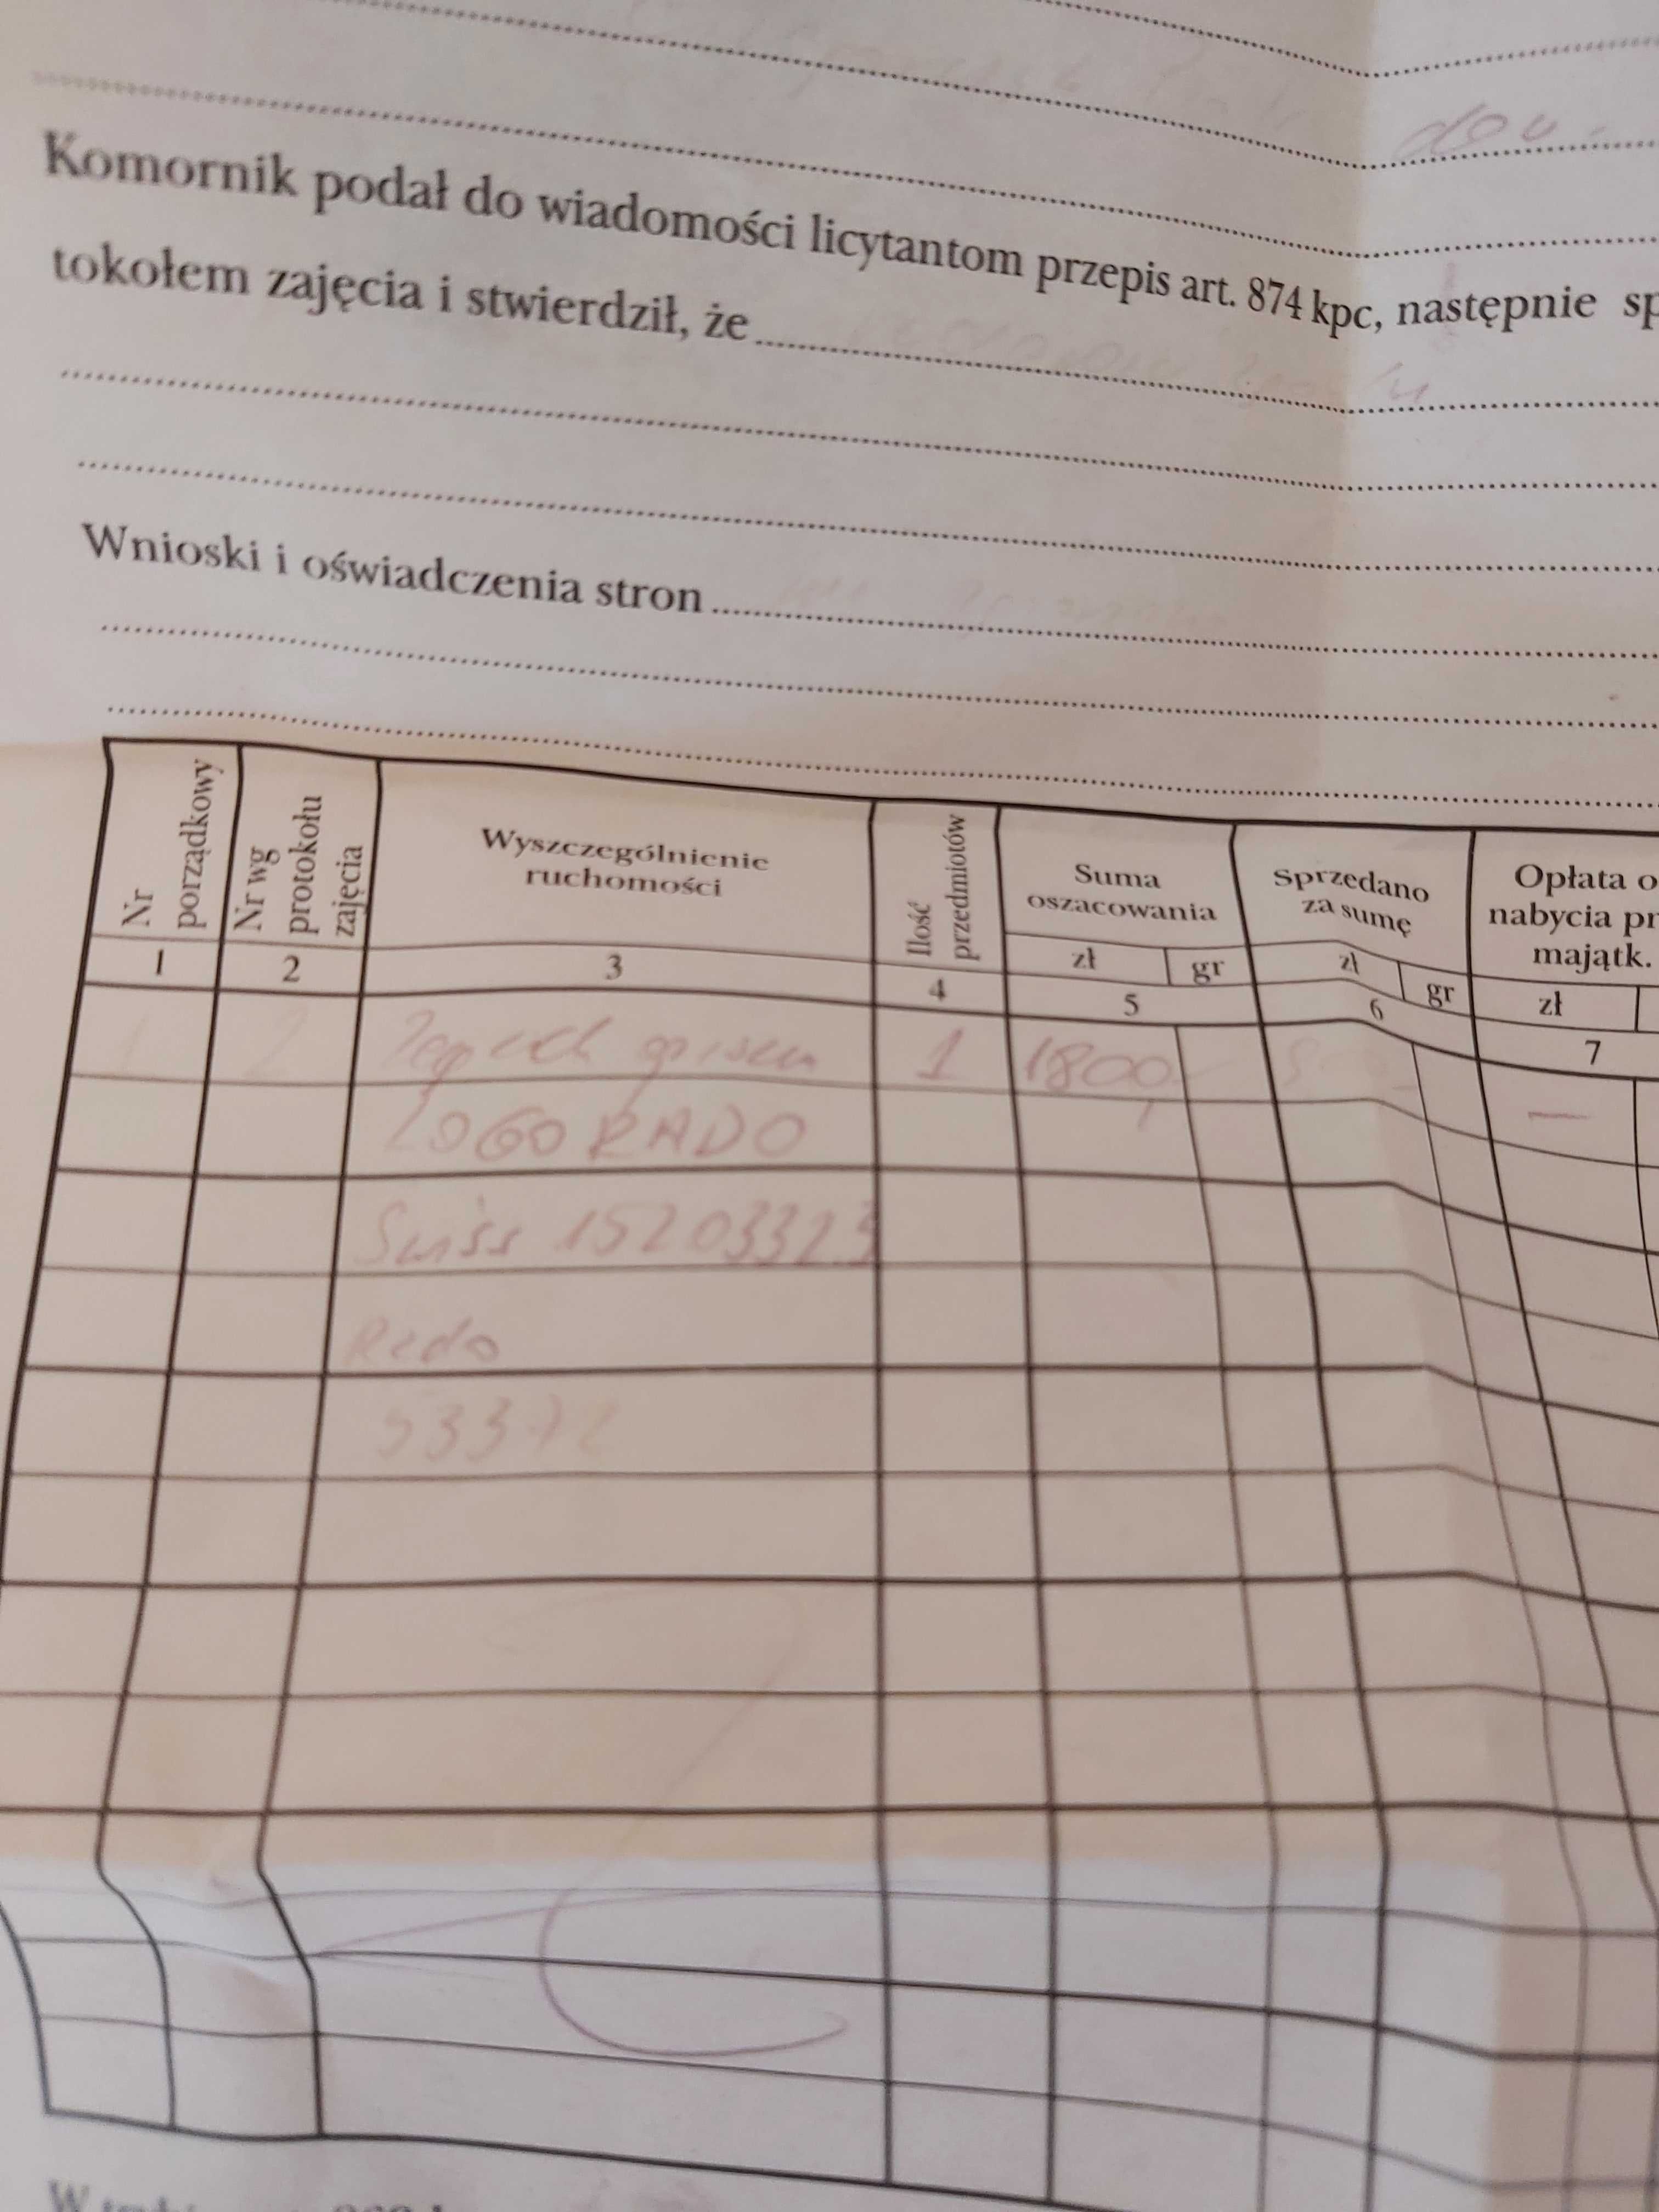 dov.
Komornik podał do wiadomości licytantom przepis art. 874 kpc, następnie sp
tokołem zajęcia i stwierdził, że
Wnioski i oświadczenia stron
Nr porządkowy
Nr wg protokołu zajęcia
Wyszczególnienie
ruchomości
Ilość przedmiotów
Suma
oszacowania
Sprzedano
za sumę
Opłata o
nabycia pr
majątk.
zł gr zł gr zł
1 2 3 4 5 6 7
1 2 1 1800,-
LOGO RADO
Swiss 15203323
Rado
53372